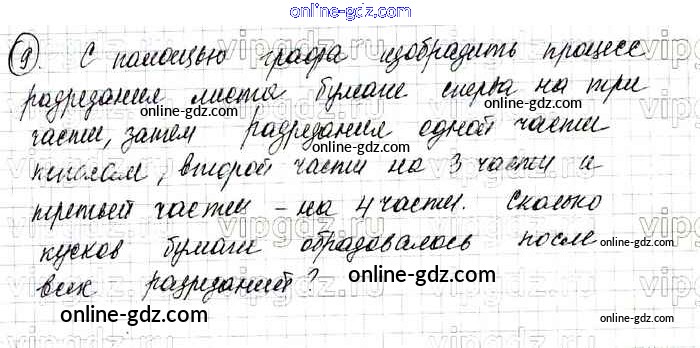 online-gdz.com
9. С помощью графа изобразить процесс
разрезания листа бумаги сперва на три
части, затем разрезания одной части
пополам, второй части на 3 части и
третьей части – на 4 части. Сколько
кусков бумаги образовалось после
всех разрезаний?
online-gdz.com
online-gdz.com
online-gdz.com
online-gdz.com